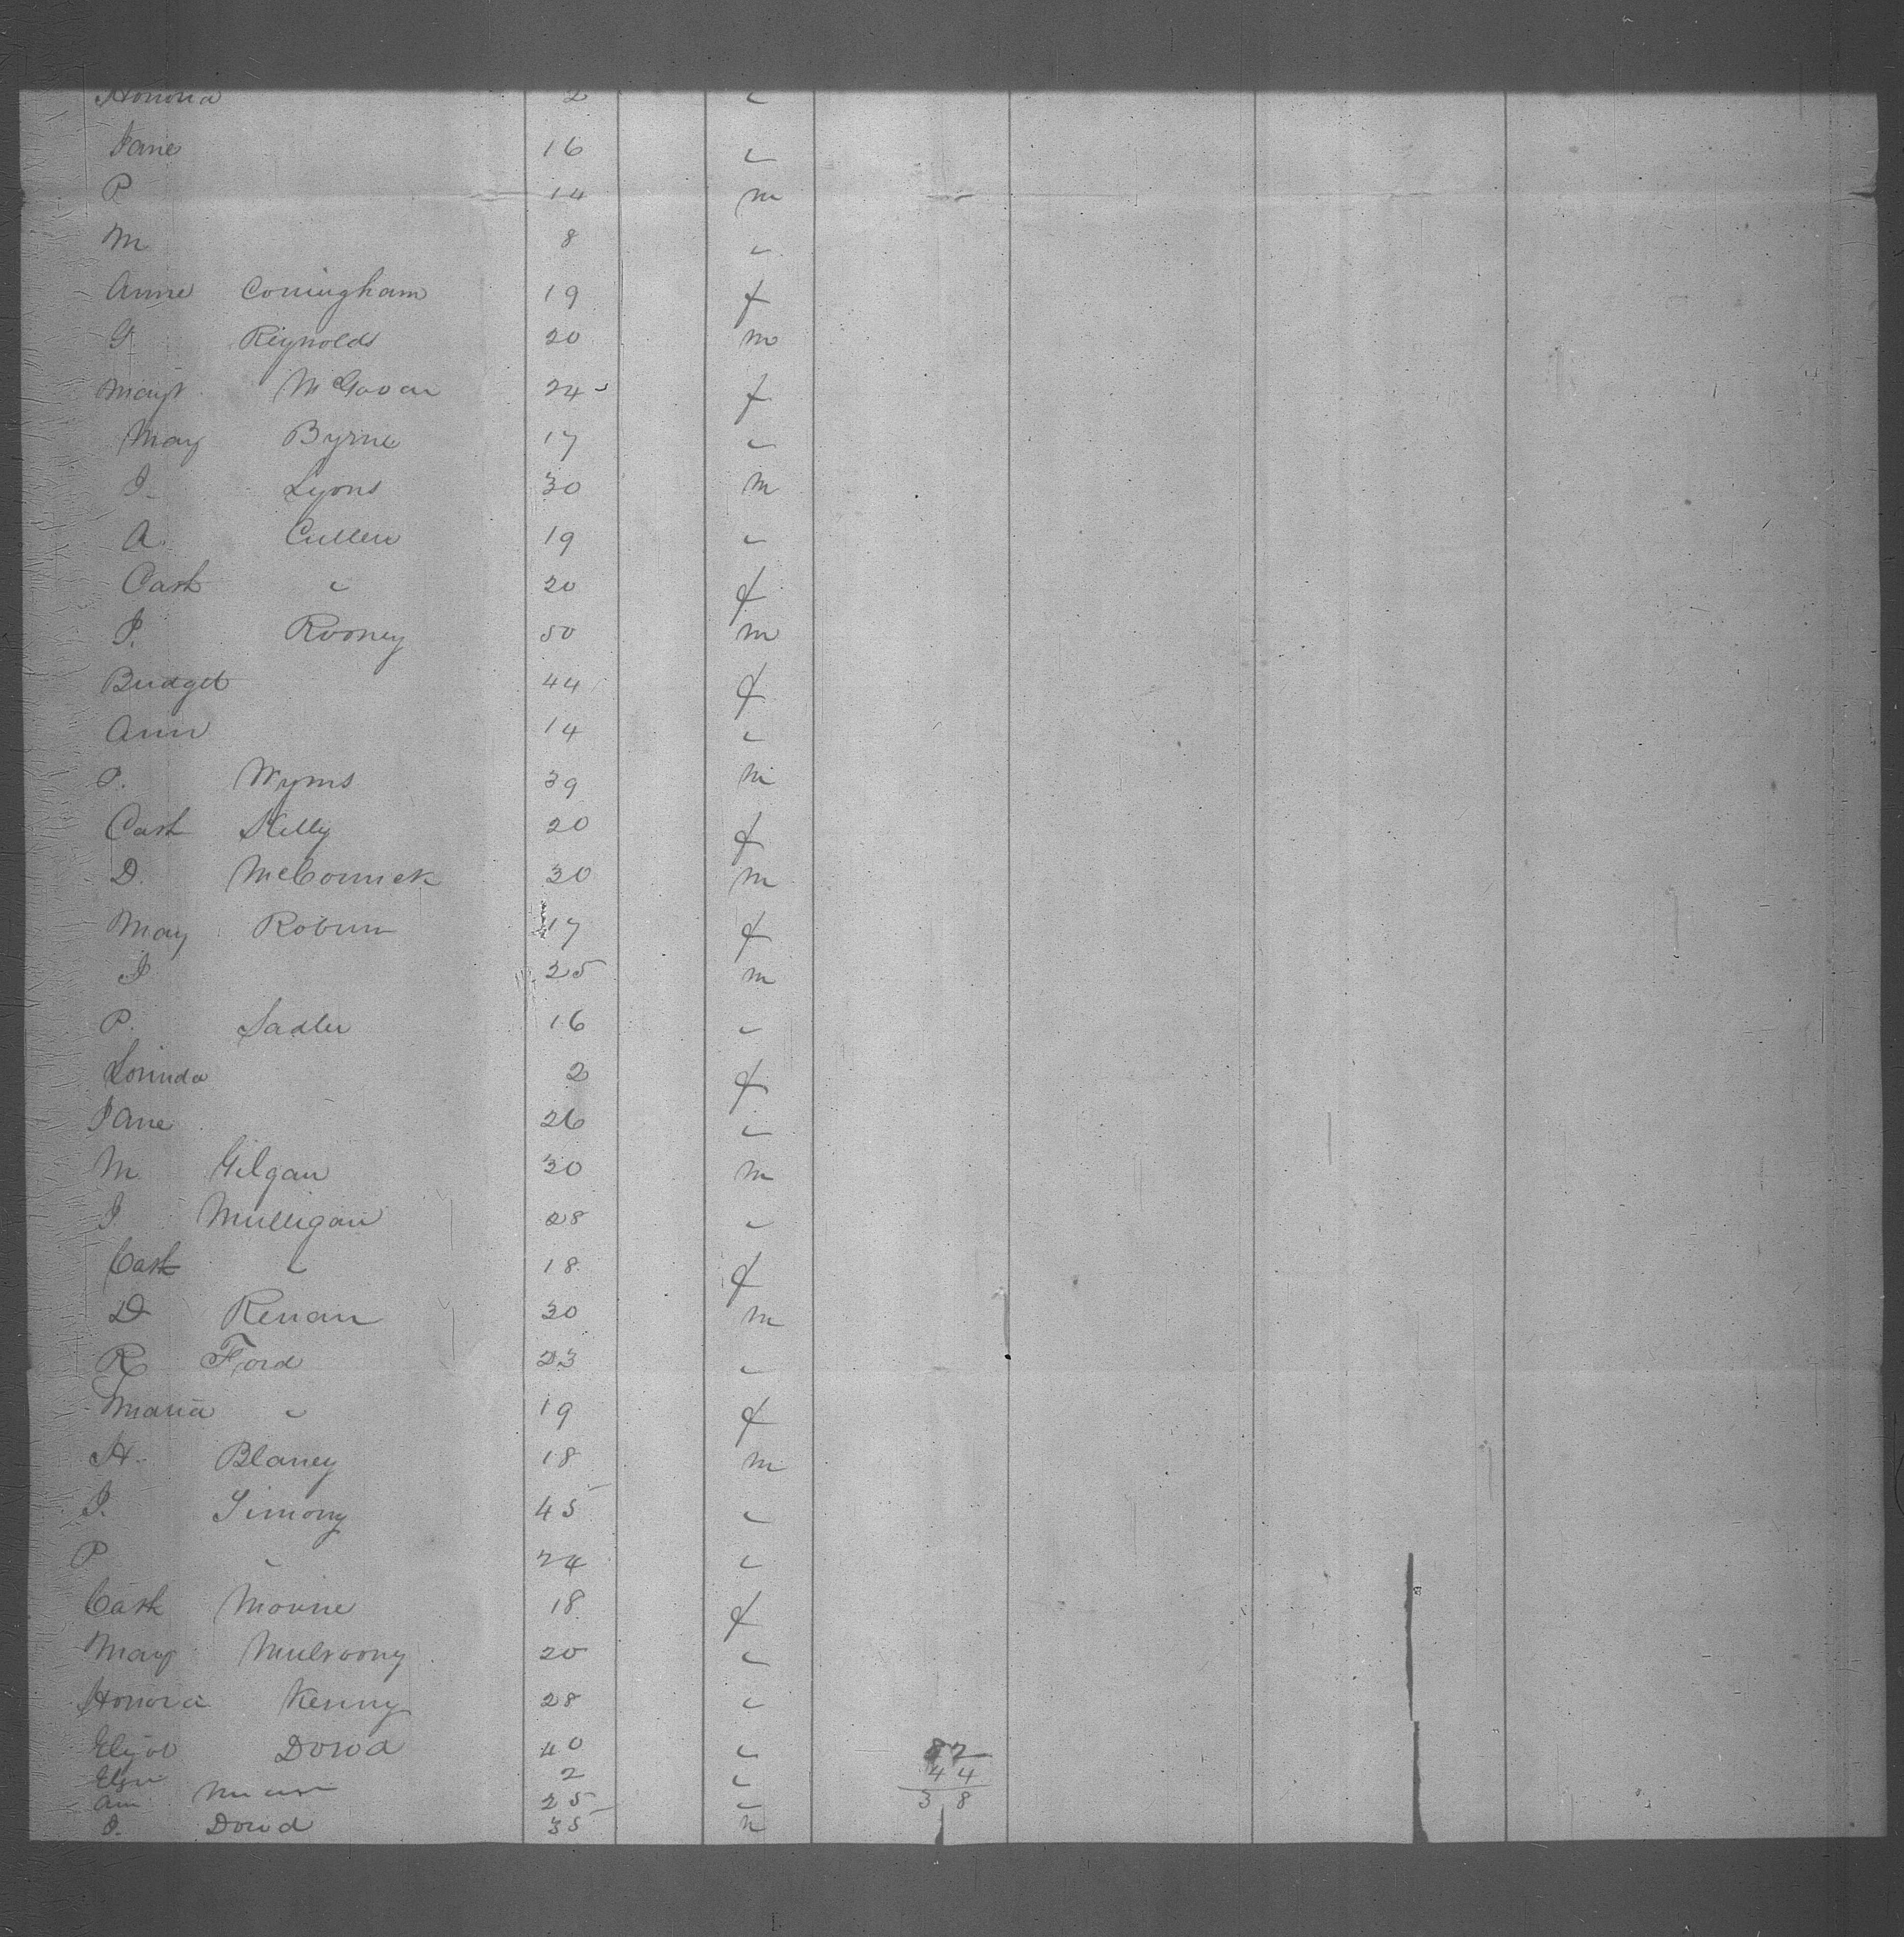 Honoria 2 "
Jane 16 "
P 14 m
M 8 "
Anne Coningham 19 f
G Reynolds 20 m
Margt McGovern 24 f
Mary Byrne 17 "
J Lyons 30 m
A. Cullen 19 "
Cath " 20 f
J. Rooney 50 m
Bridget 44 f
Ann 14 "
P. Wyms 39 m
Cath Kelly 20 f
D. McCormick 30 m
Mary 17 f
J 25 m
P. Sadler 16 "
Lorinda 2 f
Jane 26 "
M Gilgan 30 m
J Mulligan 28 "
Cath " 18 f
D 30 m
R Ford 23 "
Maria " 19 f
H. Blaney 18 m
J. Timony 45 "
P " 24 "
Cath 18 f
Mary Mulroony 20 "
Honora Kenny 28 "
Elizbt Dowd 40 " 82
2 " 44
Ann 25 " 38
J. Dowd 35 m